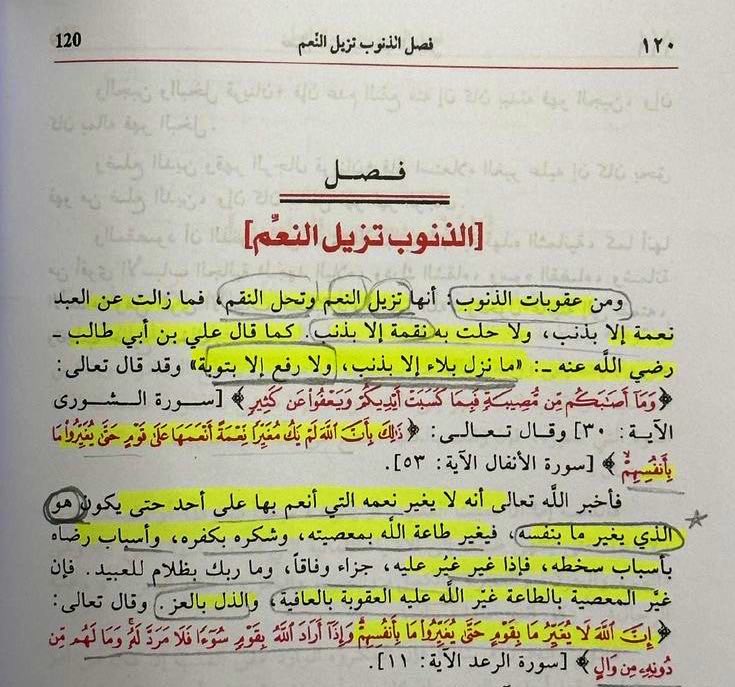 120 فصل الذنوب تزيل النّعم ١٢٠
فـصـل
[الذنوب تزيل النعم]
ومن عقوبات الذنوب: أنها تزيل النعم وتحل النقم، فما زالت عن العبد
نعمة إلا بذنب، ولا حلت به نقمة إلا بذنب. كما قال علي بن أبي طالب ـ
رضي الله عنه ـ: «ما نزل بلاء إلا بذنب، ولا رفع إلا بتوبة» وقد قال تعالى:
﴿وَمَا أَصَٰبَكُم مِّن مُّصِيبَةٍ فَبِمَا كَسَبَتْ أَيْدِيكُمْ وَيَعْفُوا۟ عَن كَثِيرٍ﴾ [سورة الشورى
الآية: ٣٠] وقال تعالى: ﴿ذَٰلِكَ بِأَنَّ ٱللَّهَ لَمْ يَكُ مُغَيِّرًا نِّعْمَةً أَنْعَمَهَا عَلَىٰ قَوْمٍ حَتَّىٰ يُغَيِّرُوا۟ مَا
بِأَنفُسِهِمْ﴾ [سورة الأنفال الآية: ٥٣].
فأخبر الله تعالى أنه لا يغير نعمه التي أنعم بها على أحد حتى يكون هو
الذي يغير ما بنفسه، فيغير طاعة الله بمعصيته، وشكره بكفره، وأسباب رضاه
بأسباب سخطه، فإذا غير غيُر عليه، جزاء وفاقاً، وما ربك بظلام للعبيد. فإن
غيَّر المعصية بالطاعة غيّر الله عليه العقوبة بالعافية، والذل بالعز. وقال تعالى:
﴿إِنَّ ٱللَّهَ لَا يُغَيِّرُ مَا بِقَوْمٍ حَتَّىٰ يُغَيِّرُوا۟ مَا بِأَنفُسِهِمْ وَإِذَا أَرَادَ ٱللَّهُ بِقَوْمٍ سُوٓءًا فَلَا مَرَدَّ لَهُۥ وَمَا لَهُم مِّن
دُونِهِۦ مِن وَالٍ﴾ [سورة الرعد الآية: ١١].